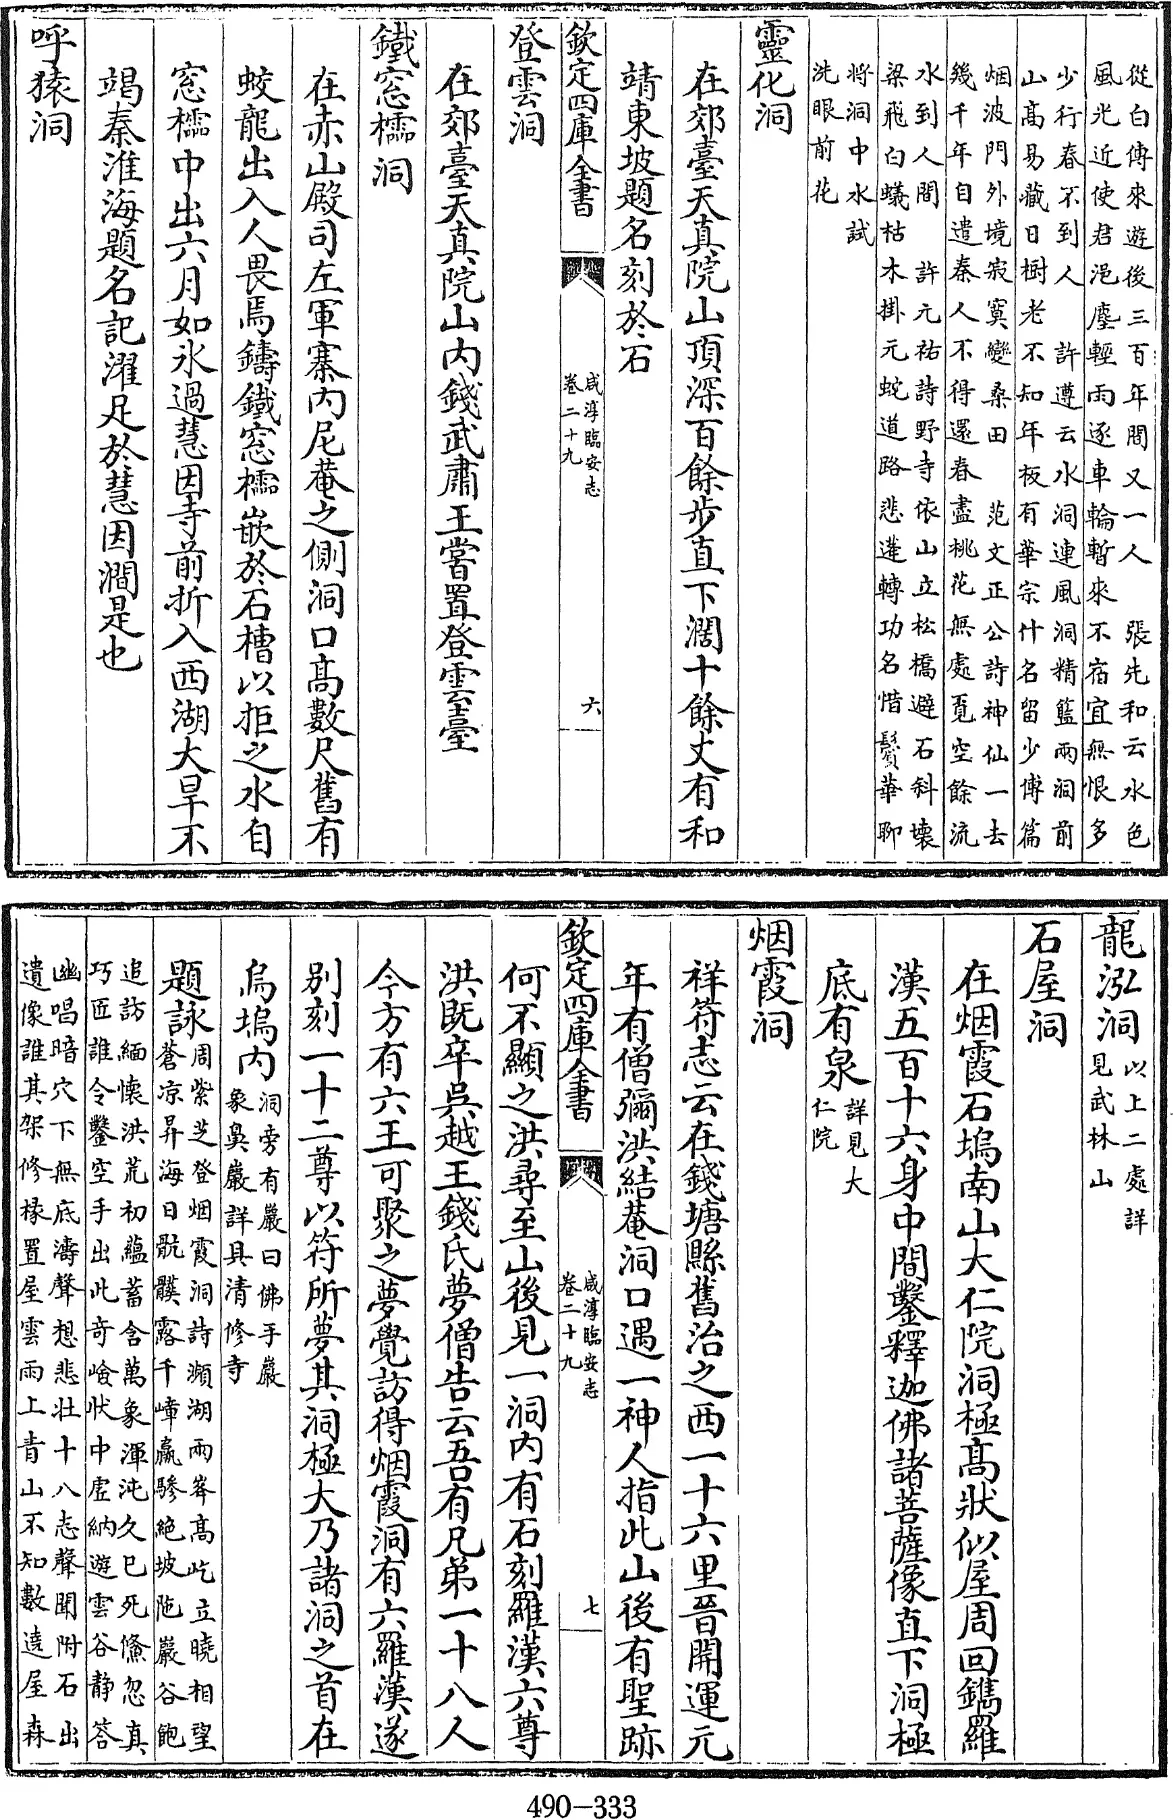 從白傅來遊後三百年間又一人　張先和云水色
風光近使君浥塵輕雨逐車輪暫來不宿宜無恨多
少行春不到人　許遵云水洞連風洞精籃兩洞前
山高易藏日樹老不知年板有華宗什名留少傅篇
烟波門外境寂寞變桑田　范文正公詩神仙一去
幾千年自遣秦人不得還春盡桃花無處覓空餘流
水到人間　許元祐詩野寺依山立松橋避石斜壞
梁飛白蟻枯木掛元蛇道路悲蓬轉功名惜鬢華聊
將洞中水試
洗眼前花
靈化洞
在郊臺天真院山頂深百餘步直下濶十餘丈有和
靖東坡題名刻於石
欽定四庫全書
咸淳臨安志
卷二十九
六
登雲洞
在郊臺天真院山内錢武肅王嘗置登雲臺
鐵窓櫺洞
在赤山殿司左軍寨内尼菴之側洞口高數尺舊有
蛟龍出入人畏焉鑄鐵窓櫺嵌於石槽以拒之水自
窓櫺中出六月如氷過慧因寺前折入西湖大旱不
竭秦淮海題名記濯足於慧因澗是也
呼猿洞
龍泓洞 以上二處詳
見武林山
石屋洞
在烟霞石塢南山大仁院洞極高狀似屋周回鐫羅
漢五百十六身中間鑿釋迦佛諸菩薩像直下洞極
底有泉 詳見大
仁院
烟霞洞
祥符志云在錢塘縣舊治之西一十六里晉開運元
年有僧彌洪結菴洞口遇一神人指此山後有聖跡
欽定四庫全書
咸淳臨安志
卷二十九
七
何不顯之洪尋至山後見一洞内有石刻羅漢六尊
洪既卒吳越王錢氏夢僧告云吾有兄弟一十八人
今方有六王可聚之夢覺訪得烟霞洞有六羅漢遂
别刻一十二尊以符所夢其洞極大乃諸洞之首在
烏塢内 洞旁有巖曰佛手巖
象鼻巖詳具清修寺
題詠 周紫芝登烟霞洞詩瀕湖兩峯高屹立曉相望
蒼凉昇海日骯髒露千嶂羸驂絶坡陁巖谷飽
追訪緬懷洪荒初蘊蓄含萬象渾沌久已死儵忽真
巧匠誰令鑿空手出此竒嶮狀中虛納遊雲谷静答
幽唱暗穴下無底濤聲想悲壯十八志聲聞附石出
遺像誰其架修椽置屋雲雨上青山不知數遶屋森
490-333